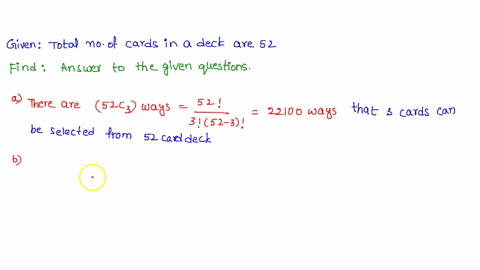 Given: Total no. of cards in a deck are 52
Find: Answer to the given questions.
a) There are (52C3) ways = 52! / 3!(52-3)! = 22100 ways that 3 cards can
be selected from 52 card deck
b)